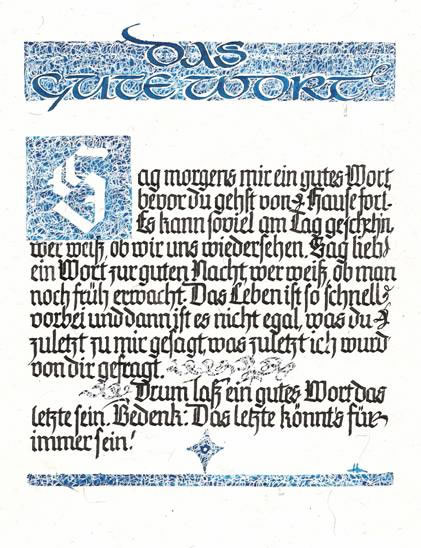 DAS
GUTE WORT
Sag morgens mir ein gutes Wort,
bevor du gehst von Hause fort.
Es kann soviel am Tag geschehn,
wer weiß, ob wir uns wiedersehen. Sag lieb
ein Wort zur guten Nacht, wer weiß, ob man
noch früh erwacht. Das Leben ist so schnell
vorbei und dann ist es nicht egal, was du
zuletzt zu mir gesagt, was zuletzt ich wurd
von dir gefragt.
Drum laß ein gutes Wort das
letzte sein. Bedenk: Das letzte könnt's für
immer sein!